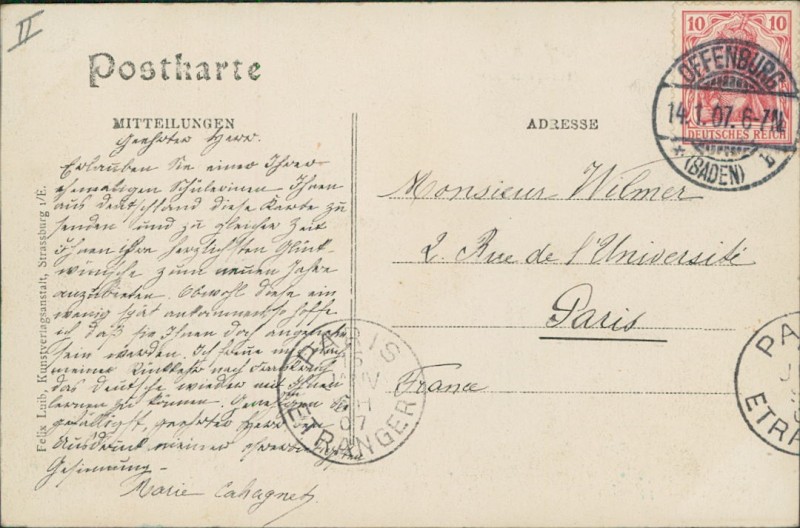 II
Postkarte
MITTEILUNGEN
Geehrter Herr.
Erlauben Sie einer Ihrer
ehemaligen Schülerinen Ihnen
aus Deutschland diese Karte zu
senden und zu gleicher Zeit
Ihnen ihre herzlichsten Glück-
wünsche zum neuen Jahre
anzubieten. Obwohl diese ein
wenig spät ankommen so hoffe
ich daß sie Ihnen doch angenehm
sein werden. Ich freue mich
meiner Rückkehr nach Frankreich
das Deutsche wieder mit Ihnen
lernen zu können. Genehmigen Sie
gefälligst, geehrter Herr den
Ausdruck meiner
Gesinnung -
Marie Cahagnet
Felix Luib, Kunstverlagsanstalt, Strassburg i/E.
ADRESSE
Monsieur Wilmer
2. Rue de l'Université
Paris
France
10 10
DEUTSCHES REICH
OFFENBURG
14.1.07. 6-7N.
* (BADEN) b
PARIS
07
ETRANGER
PA
ETRA